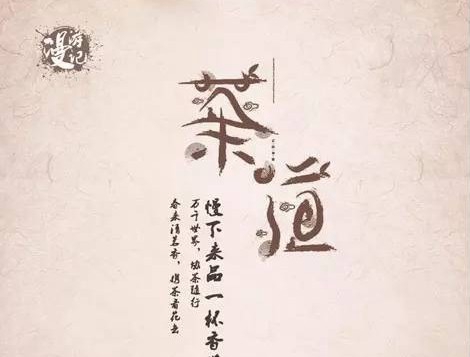 漫游记
茶道
慢下来品一杯香
万千世界，茶随行
春来清香，携茶看花去